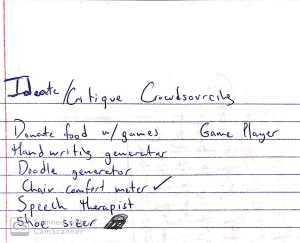 Ideate/Critique Crowdsourcing
Donate food w/games Game Player
Handwriting generator
Doodle generator
Chair comfort meter ✓
Speech therapist
Shoe sizer
CamScanner